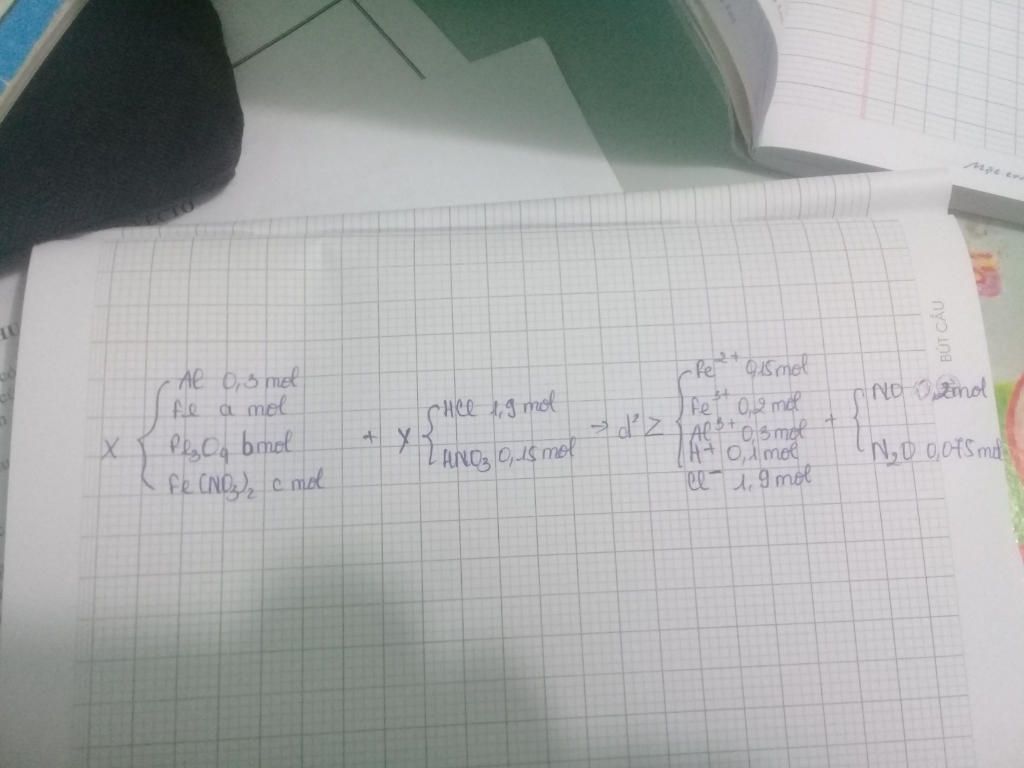 Mặc
ECTO
BÚT CẦU
X { Al 0,3 mol
Fe a mol
Fe3O4 b mol
Fe(NO3)2 c mol
+ Y { HCl 1,9 mol
HNO3 0,15 mol
→ d² Z { Fe2+ 0,15 mol
Fe3+ 0,2 mol
Al3+ 0,3 mol
H+ 0,1 mol
Cl- 1,9 mol
+ { NO 0,2 mol
N2O 0,075 mol